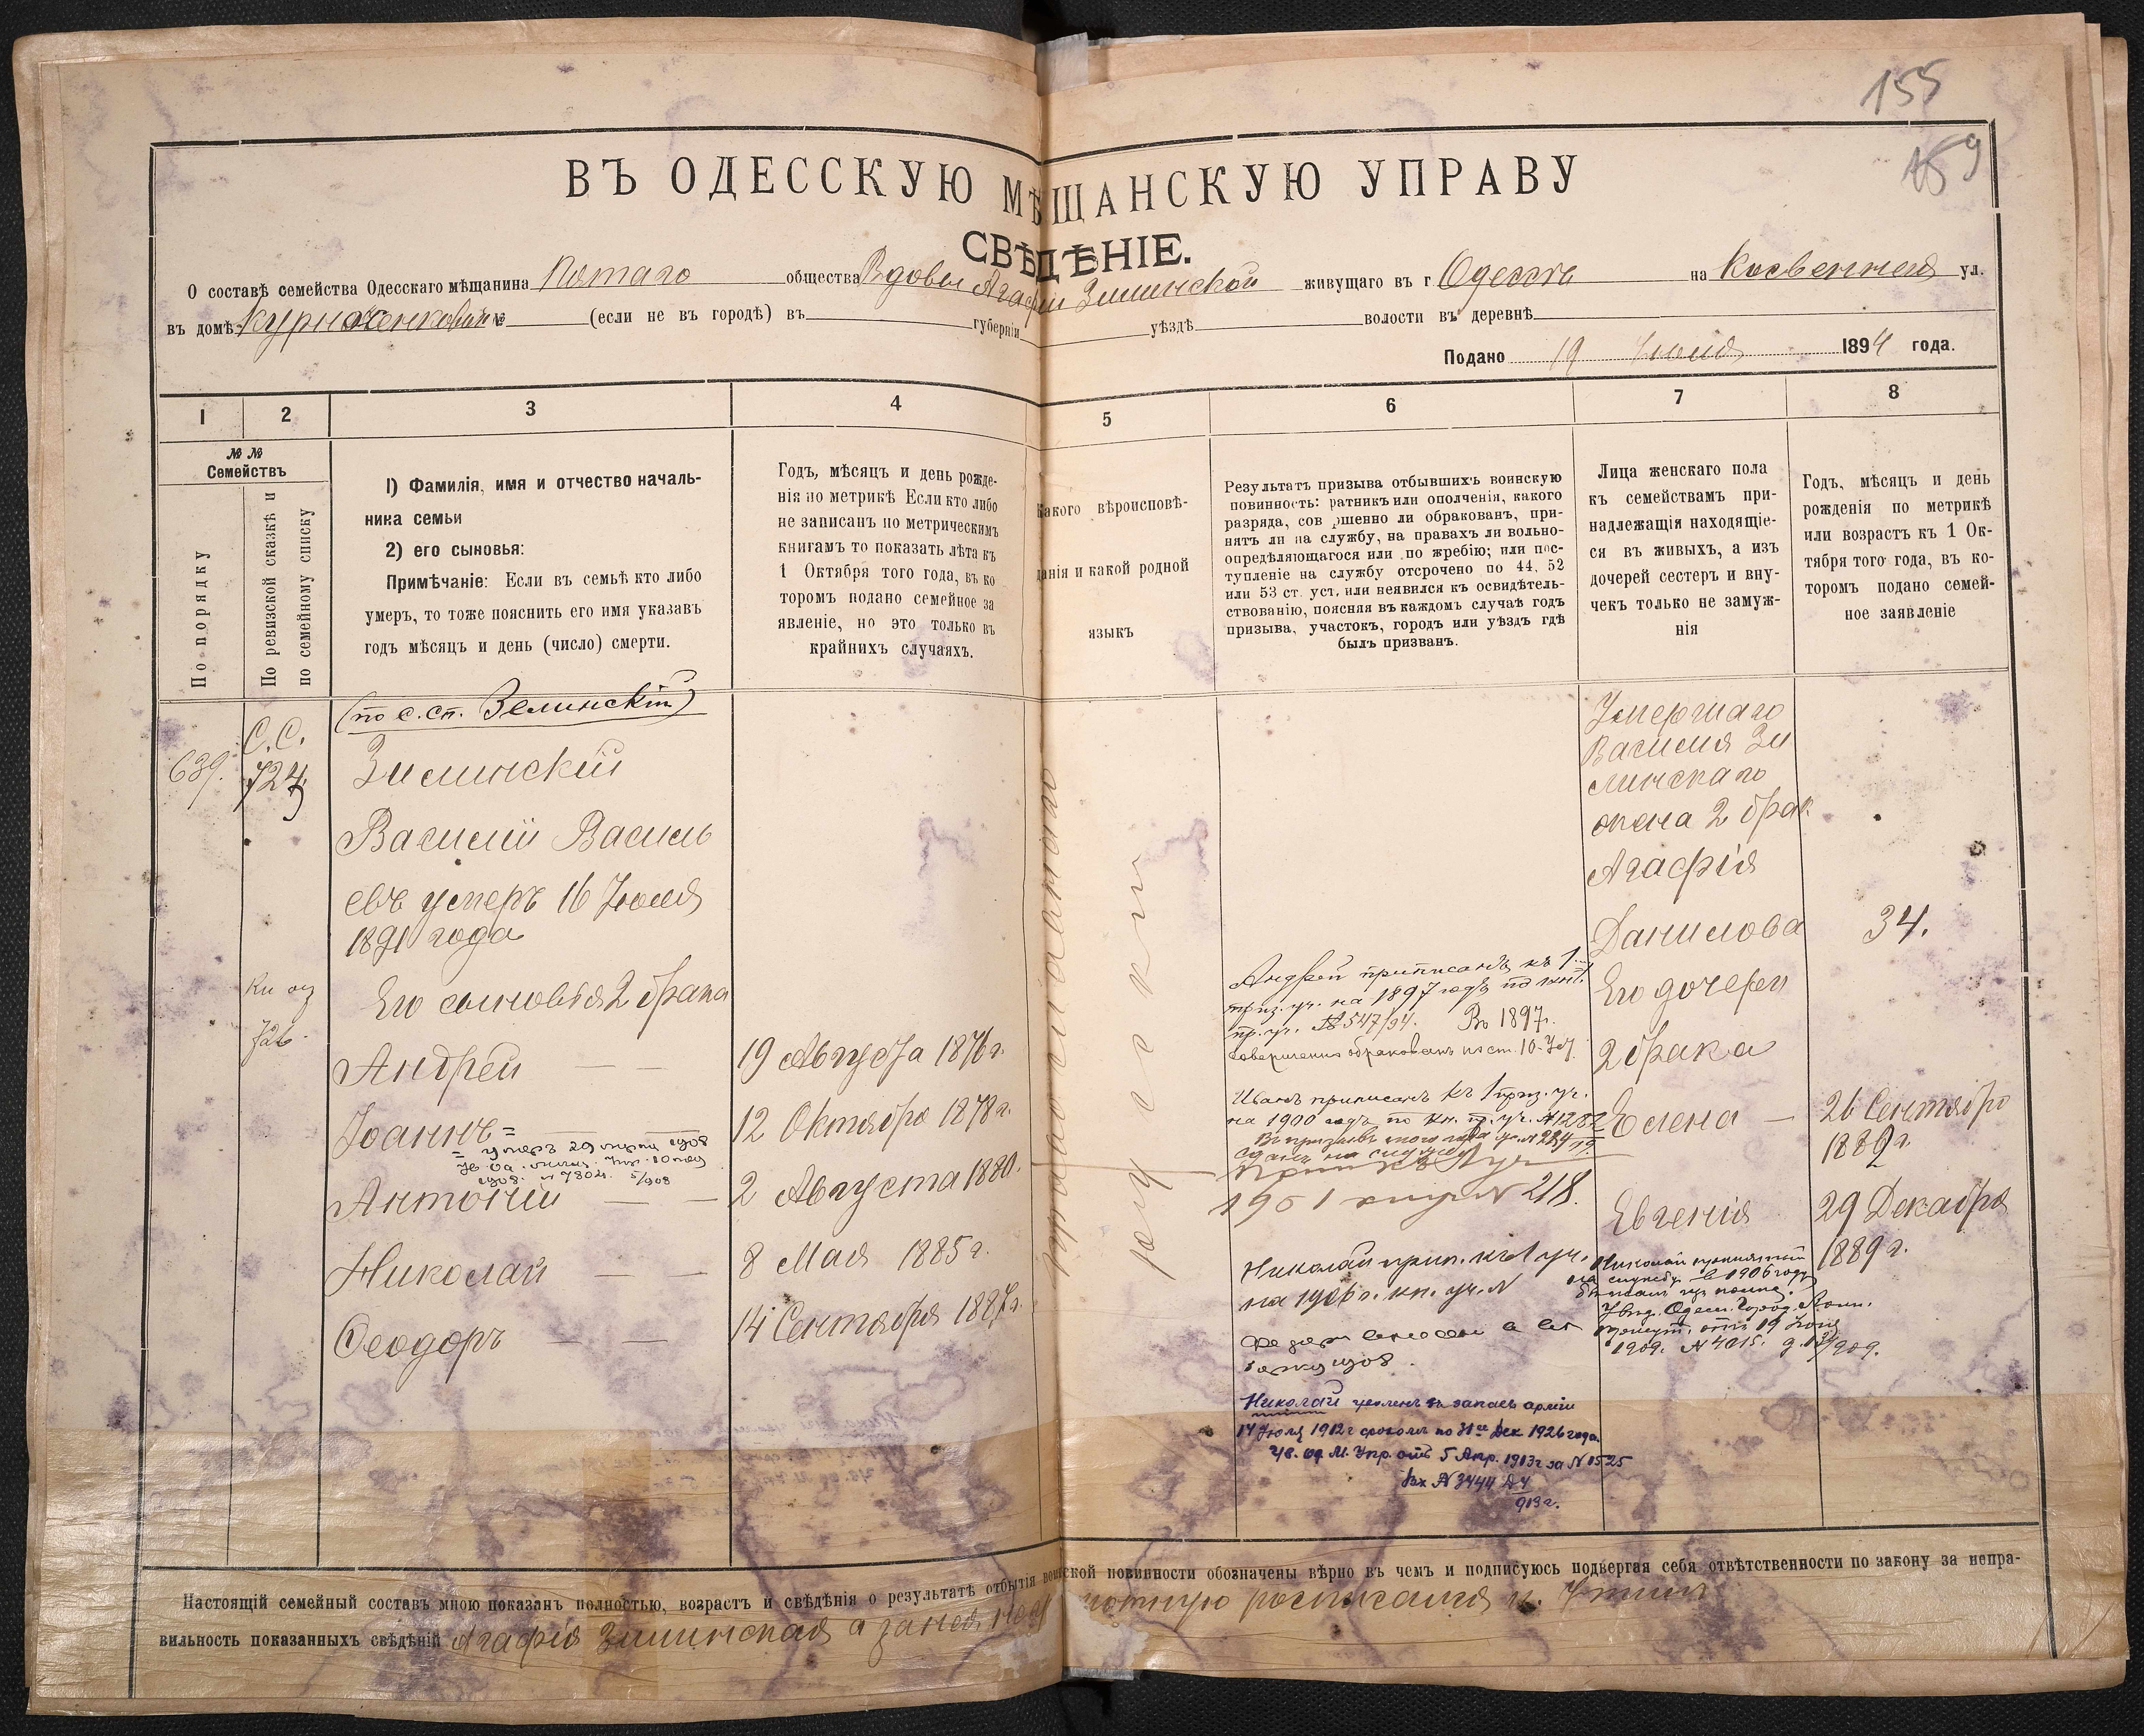 155
159
ВЪ ОДЕССКУЮ МѢЩАНСКУЮ УПРАВУ
СВѢДѢНІЕ.
О составѣ семейства Одесскаго мѣщанина Пятаго общества Вдовы Агафіи Зилинской живущаго въ г Одессѣ на Косвенной ул.
въ домѣ № (если не въ городѣ) въ губерніи уѣздѣ волости въ деревнѣ
Подано 19 Іюля 1894 года.
1 2 3 4 5 6 7 8
№ № Семействъ
По порядку
По ревизской сказкѣ и
по семейному списку
1) Фамилія, имя и отчество началь-
ника семьи
2) его сыновья:
Примѣчаніе: Если въ семьѣ кто либо
умеръ, то тоже пояснить его имя указавъ
годъ мѣсяцъ и день (число) смерти.
Годъ, мѣсяцъ и день рожде-
нія по метрикѣ Если кто либо
не записанъ по метрическимъ
книгамъ то показать лѣта къ
1 Октября того года, въ ко
торомъ подано семейное за
явленіе, но это только въ
крайнихъ случаяхъ.
Какого вѣроисповѣ-
данія и какой родной
языкъ
Результатъ призыва отбывшихъ воинскую
повинность: ратникъ или ополченія, какого
разряда, сов ршенно ли обракованъ, при-
нятъ ли на службу, на правахъ ли вольно-
опредѣляющагося или по жребію; или пос-
тупленіе на службу отсрочено по 44, 52
или 53 ст. уст. или неявился къ освидѣтель-
ствованію, поясняя въ каждомъ случаѣ годъ
призыва, участокъ, городъ или уѣздъ гдѣ
былъ призванъ.
Лица женскаго пола
къ семействамъ при-
надлежащія находящіе-
ся въ живыхъ, а изъ
дочерей сестеръ и вну-
чекъ только не замуж-
нія
Годъ, мѣсяцъ и день
рожденія по метрикѣ
или возрастъ къ 1 Ок-
тября того года, въ ко-
торомъ подано семей-
ное заявленіе
(по с. сп. Зелинскій)
639.
С.С.
724
Зилинскій
Василій Василь
евъ умеръ 16 Іюля
1891 года
Его сыновья 2 брака
726
Андрей — —
19 Августа 1876 г.
Іоаннъ =
= умеръ 29 1908
12 Октября 1878 г.
Антоній — —
2 Августа 1880.
Николай — —
8 Мая 1885 г.
Ѳеодоръ — —
14 Сентября 1887 г.
православнаго
русскій
Андрей приписанъ къ 1
приз. уч. на 1897 годъ по кн.
пр. уч. № 547/94. Въ 1897 г.
совершенно обракованъ по ст. 10
Иванъ приписанъ къ 1 приз. уч.
на 1900 годъ по кн. пр. уч. № 1282
1901 № 218.
Николай прип. къ 1 уч.
на 1906 г. кн. уч. №
Николай уволенъ въ запасъ арміи
14 Іюля 1912 г срокомъ по 31 ое Дек 1926 года.
Ув. Од М. Упр. отъ 5 Апр. 1913 г за № 1525
Вх № 3444
913 г.
Умершаго
Василія Зи
линскаго
жена 2 брак
Агафія
Данилова
34.
Его дочери
2 брака
Елена —
26 Сентября
1882 г.
Евгенія
29 Декабря
1889 г.
Николай принятый
на службу въ 1906 году
Увед. Одесс. Город. Воин.
присут. отъ 19 Іюня
1909. № 4015.
Настоящій семейный составъ мною показанъ полностью, возрастъ и свѣдѣнія о результатѣ отбытія воинской повинности обозначены вѣрно въ чемъ и подписуюсь подвергая себя отвѣтственности по закону за непра-
вильность показанныхъ свѣдѣній Агафія Зилинская а за нея, негра
мотную росписался